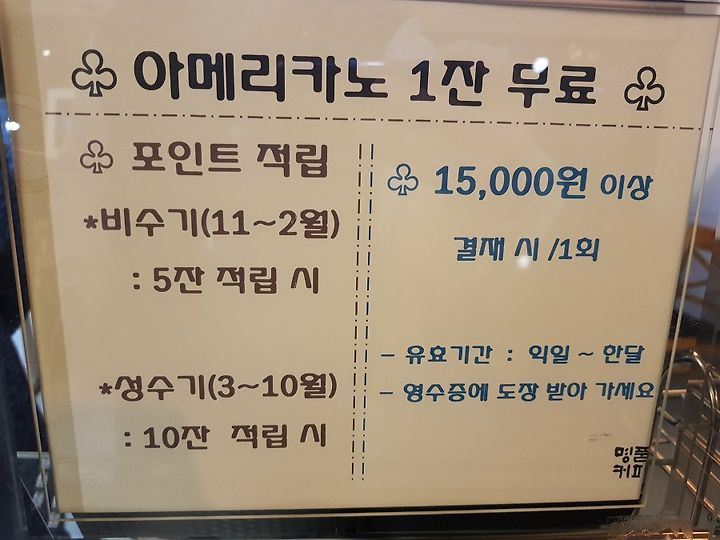 ♧ 아메리카노 1잔 무료 ♧
♧ 포인트 적립
*비수기(11~2월)
: 5잔 적립 시
*성수기(3~10월)
: 10잔 적립 시
♧ 15,000원 이상
결재 시 /1회
- 유효기간 : 익일 ~ 한달
- 영수증에 도장 받아 가세요
명품
커피